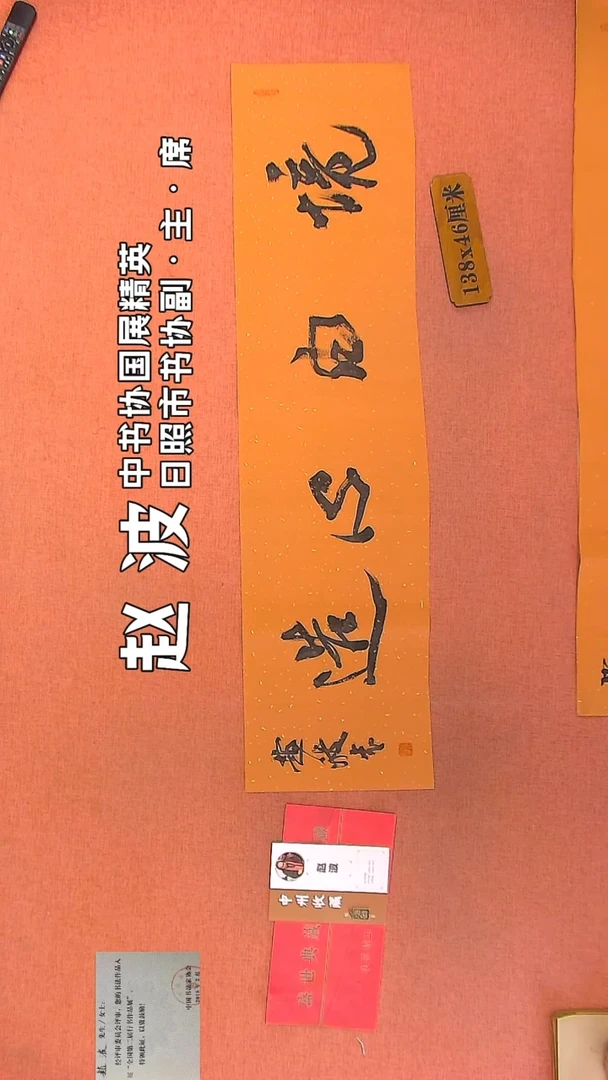 赵波
中书协国展精英
日照市书协副·主·席
境由心造
赵波书
138x46厘米
赵波
中州收藏
盛世典藏
赵波 先生/女士:
经评审委员会评审,您的书法作品入
展“全国第二届行书作品展”。
特颁此证,以资鼓励!
中国书法家协会